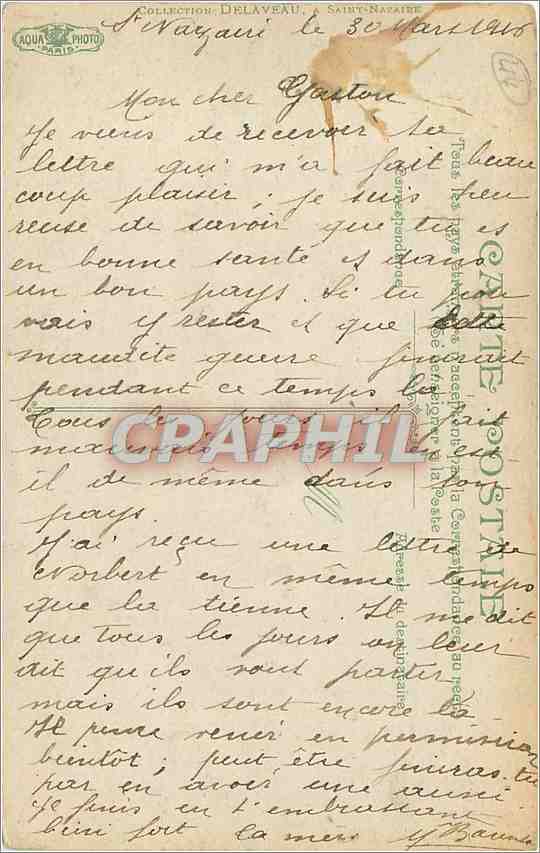 Collection DELAVEAU, à SAINT-NAZAIRE
AQUA PHOTO
PARIS
St Nazaire le 30 Mars 1916
Mon cher Gaston
Je viens de recevoir ta
lettre qui m'a fait beau
coup plaisir; je suis heu
reuse de savoir que tu es
en bonne santé et dans
un bon pays. Si tu pou
vais y rester et que cette
maudite guerre finirait
pendant ce temps là
Tous les jours il fait
mauvais temps en est
il de même dans ton
pays
J'ai reçu une lettre de
Norbert en même temps
que la tienne. Il me dit
que tous les jours on leur
dit qu'ils vont partir
mais ils sont encore là
Il pense venir en permission
bientot; peut être
par en avoir une aussi
Je finis en t'embrassant
bien fort ta mère
CARTE POSTALE
Tous les pays étrangers n'acceptent pas la Correspondance au recto
(Se renseigner à la Poste)
Correspondance
Adresse du destinataire
CPAPHIL